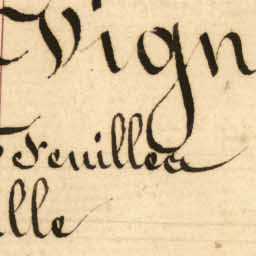 Vign
Feuillea
lle